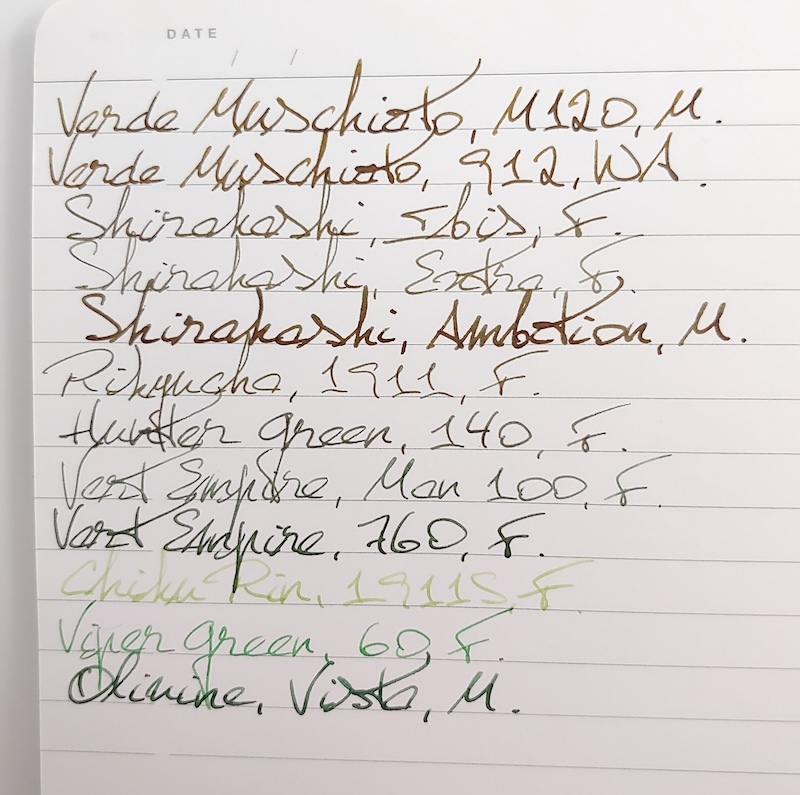 DATE / /
Verde Muschiato, M120, M.
Verde Muschiato, 912, WA.
Shirakashi, Ibis, F.
Shirakashi, Extra, F.
Shirakashi, Ambition, M.
Rikyucha, 1911, F.
Hunter Green, 140, F.
Vert Empire, Man 100, F.
Vert Empire, 760, F.
Chiku Rin, 1911S F.
Viper Green, 60, F.
Olivine, Vista, M.